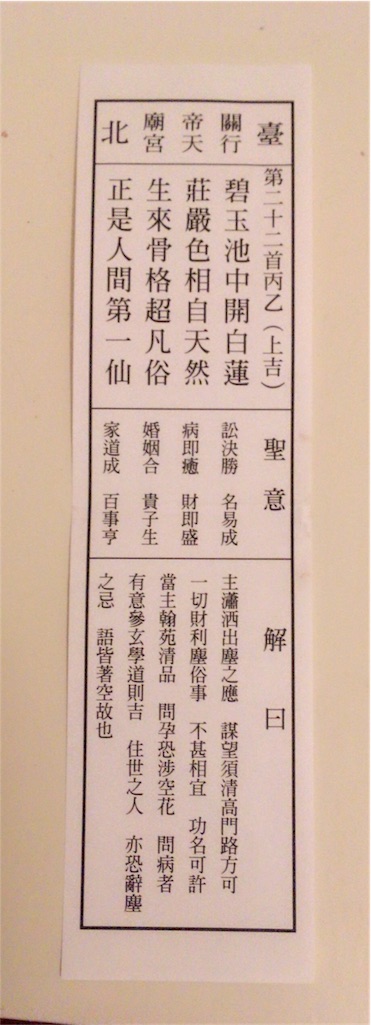 臺北
關帝廟
行天宮
第二十二首丙乙(上吉)
碧玉池中開白蓮
莊嚴色相自天然
生來骨格超凡俗
正是人間第一仙
聖意
訟決勝 名易成
病即癒 財即盛
婚姻合 貴子生
家道成 百事亨
解曰
主瀟洒出塵之應 謀望須清高門路方可
一切財利塵俗事 不甚相宜 功名可許
當主翰苑清品 問孕恐涉空花 問病者
有意參玄學道則吉 住世之人 亦恐辭塵
之忌 語皆著空故也